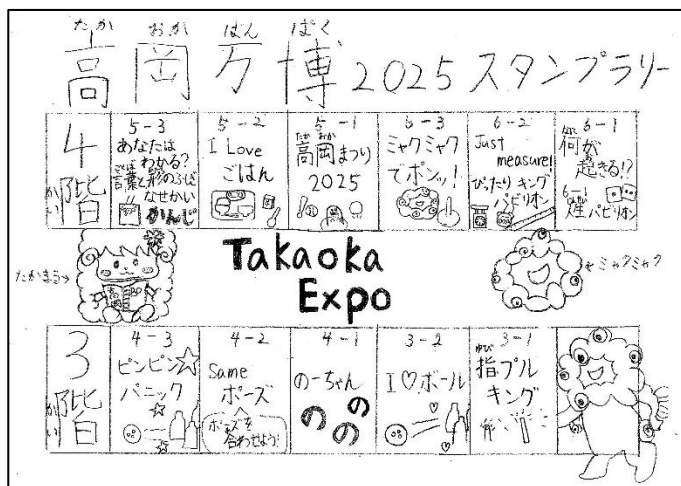 たか おか ばん ぱく
高岡万博2025スタンプラリー
4階
かい
5-3
あなたは
わかる?
ことば
言葉と形のふしぎ
なせかい
かんじ
5-2
I Love
ごはん
5-1
たか おか
高岡まつり
2025
5-3
ミャクミャク
でポンッ!
6-2
Just
measure!
ぴったりキング
パビリオン
6-1
なに お
何が起きる!?
6-1
パビリオン
たかまる→
Takaoka
Expo
←ミャクミャク
3階
かい
4-3
ピンピン
パニック
4-2
Same
ポーズ
ポーズを
合わせよう!
4-1
のーちゃん
の
の
の
の
3-2
I♡ボール
3-1
ゆび
指プル
キング